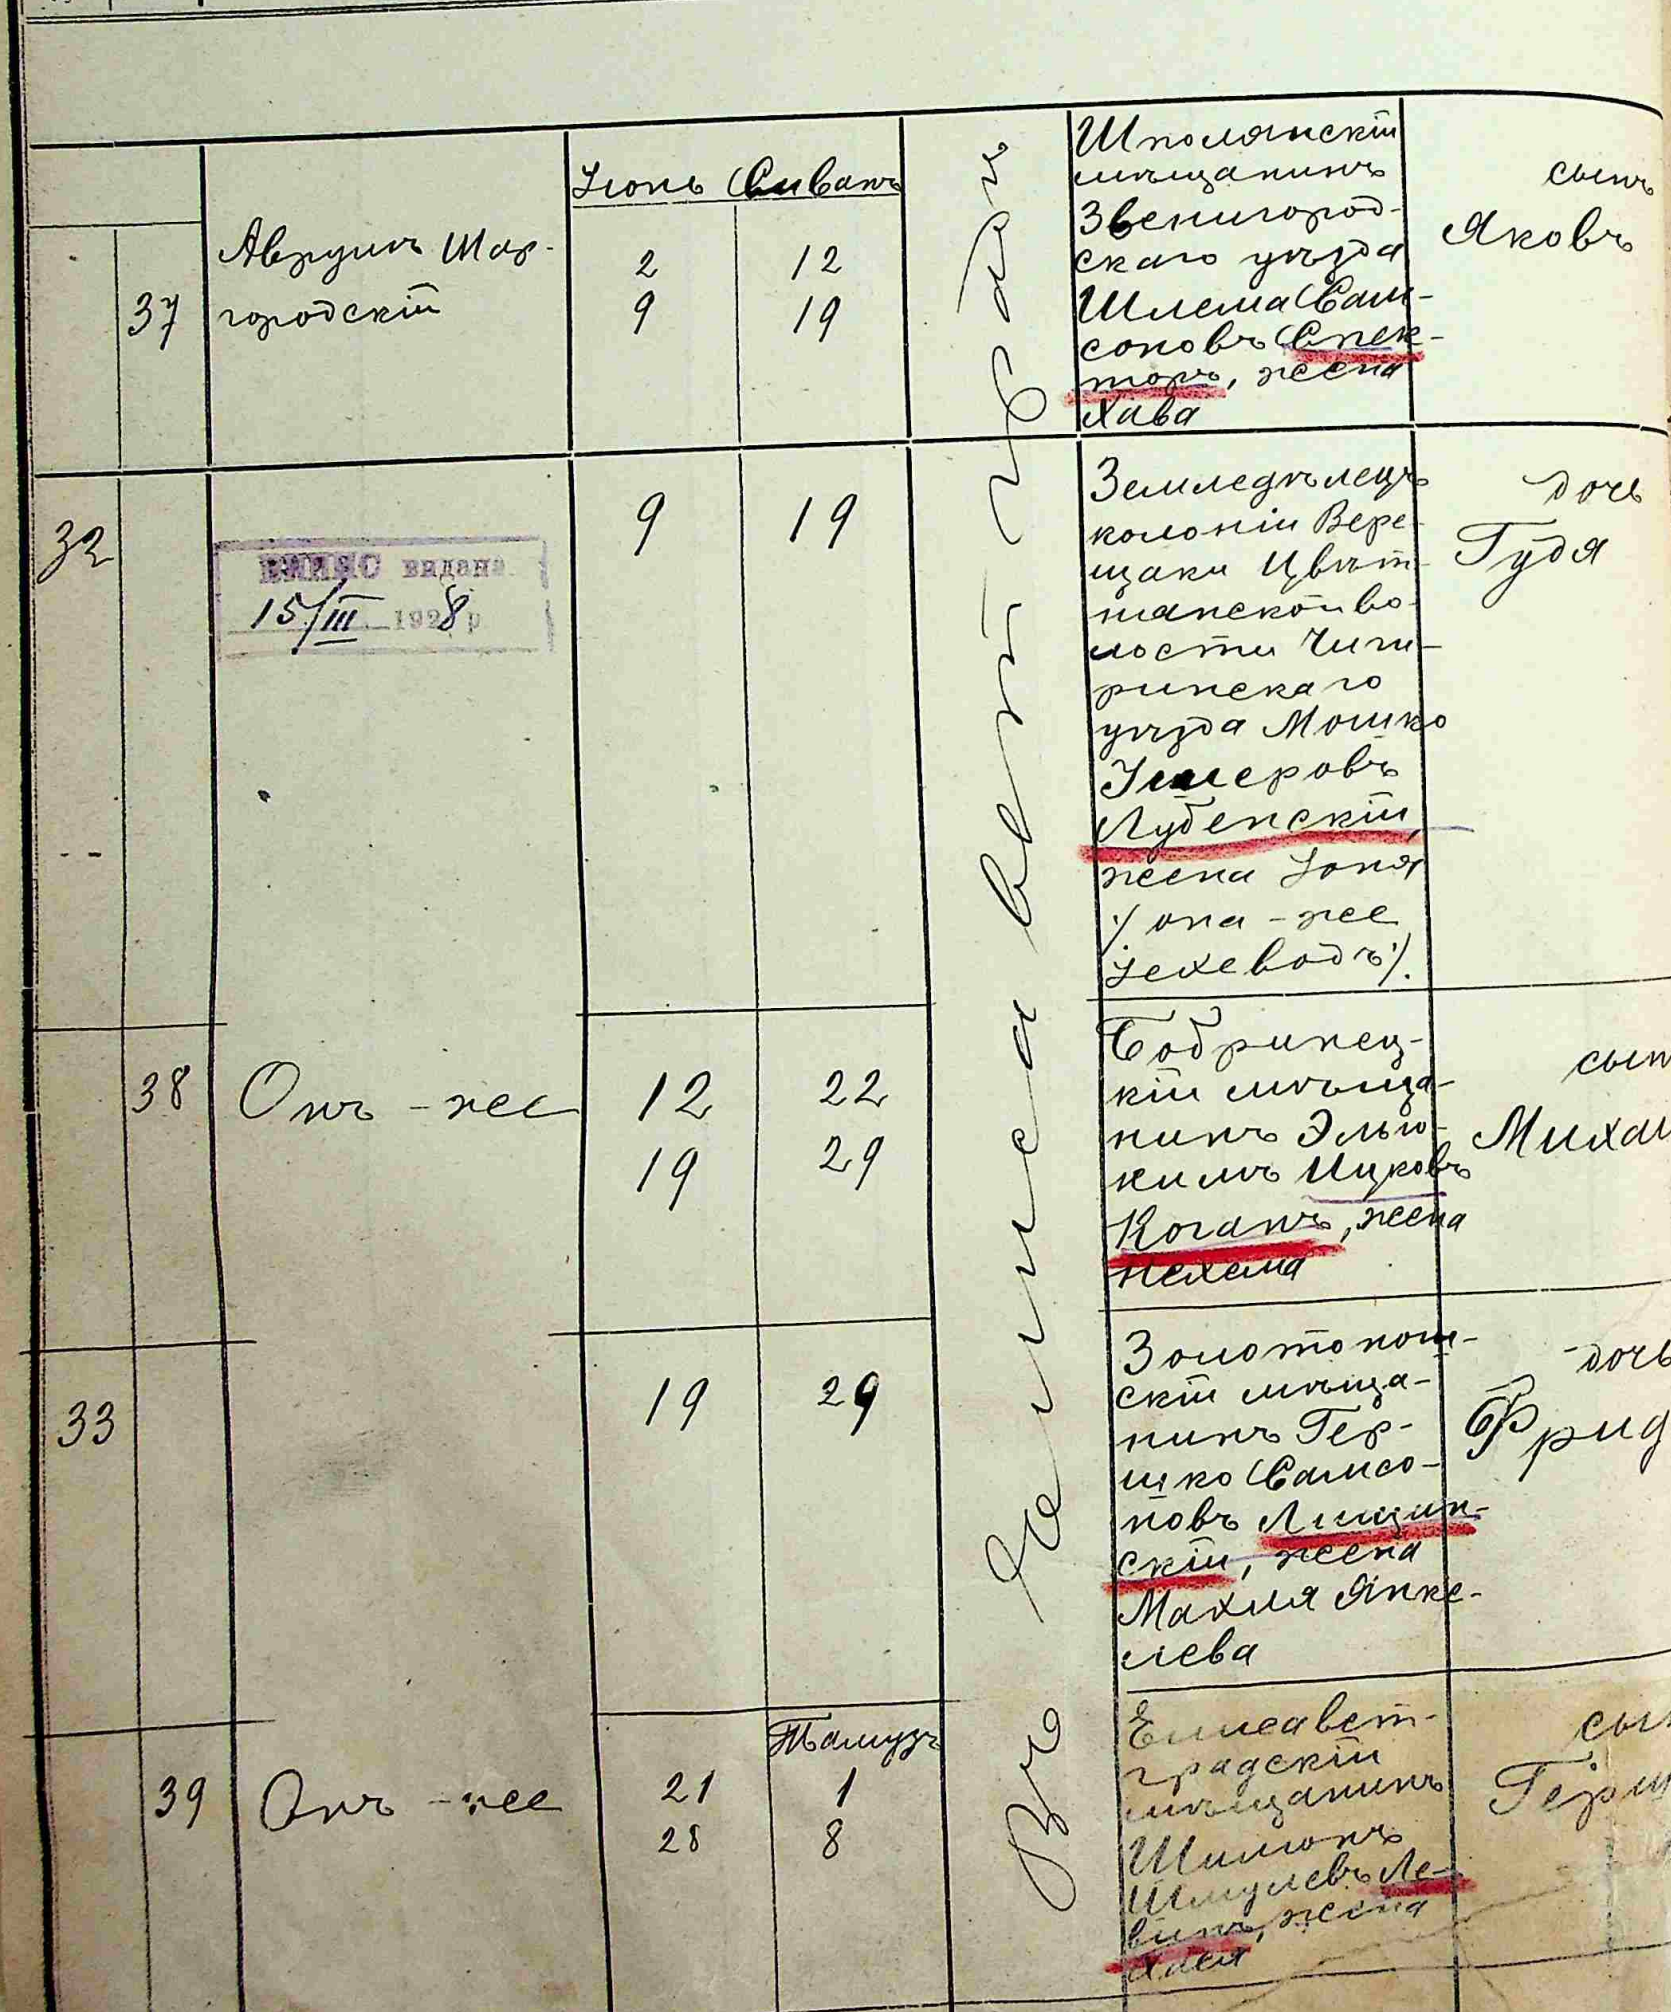 Іюнь Сиванъ
37
Аврумъ Шар-
городскій
2 12
9 19
Въ Елисаветградѣ
Шполянскій
мѣщанинъ
Звенигород-
скаго уѣзда
Шлема Сам-
соновъ Спек-
торъ, жена
Хава
сынъ
Яковъ
32
видана
15/III 1928 р
9 19
Земледѣлецъ
колоніи Вере-
щаки Цвѣт-
нанской во-
лости Чиги-
ринскаго
уѣзда Мошко
Ушеровъ
Лубенскій,
жена Зоня
/ она-же
/.
дочь
Гудя
38
Онъ-же
12 22
19 29
Бобринец-
кій мѣща-
нинъ Элью-
кимъ Ицковъ
Коганъ, жена
Нехама
сын
Михаи
33
19 29
Золотонош-
скій мѣща-
нинъ Гер-
шко Самсо-
новъ Лищин-
скій, жена
Махля Янке-
лева
дочь
Фрид
39
Онъ-же
Тамузъ
21 1
28 8
Елисавет-
градскій
мѣщанинъ
Шимонъ
Шмулевъ Ле-
винъ, жена
Хая
сын
Герш